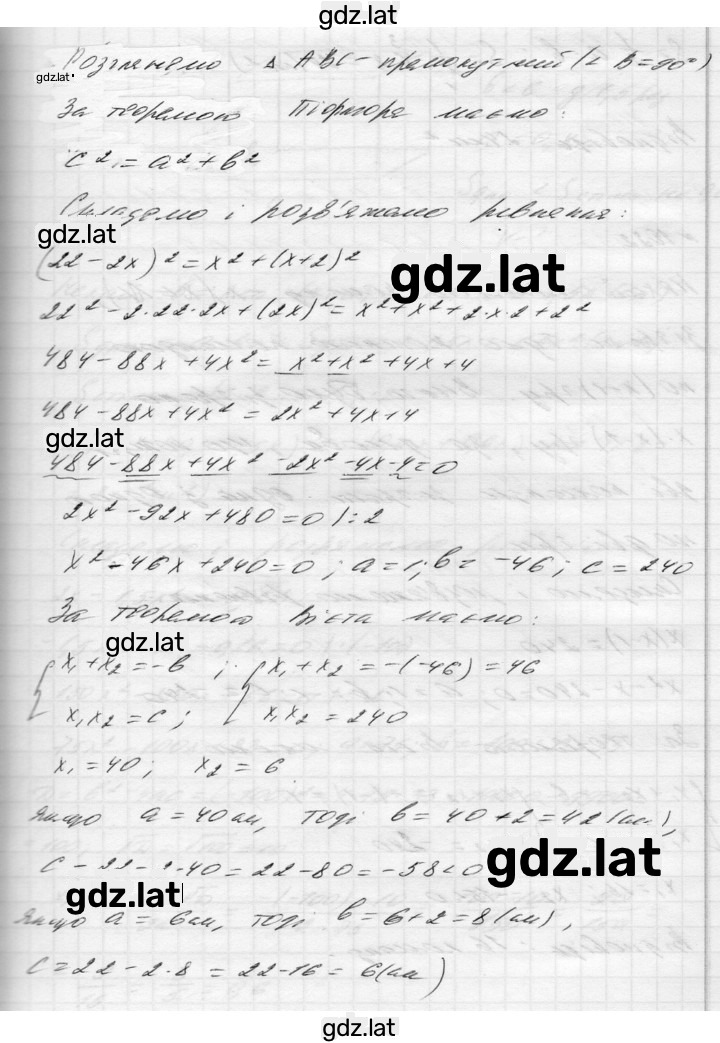 gdz.lat
Розглянемо Δ ABC - прямокутний (∠ B = 90°)
gdz.lat
За теоремою Піфагора маємо:
c² = a² + b²
Складемо і розв'яжемо рівняння:
gdz.lat
(22 - 2x)² = x² + (x+2)²
gdz.lat
22² - 2·22·2x + (2x)² = x² + x² + 2·x·2 + 2²
484 - 88x + 4x² = x² + x² + 4x + 4
484 - 88x + 4x² = 2x² + 4x + 4
gdz.lat
484 - 88x + 4x² - 2x² - 4x - 4 = 0
2x² - 92x + 480 = 0 /: 2
x² - 46x + 240 = 0 ; a = 1; b = -46; c = 240
За теоремою Вієта маємо:
gdz.lat
{ x₁ + x₂ = -b ; { x₁ + x₂ = -(-46) = 46
x₁x₂ = c ; x₁x₂ = 240
x₁ = 40; x₂ = 6
якщо a = 40 см, тоді b = 40 + 2 = 42 (см),
c = 22 - 2·40 = 22 - 80 = -58 < 0
gdz.lat
gdz.lat
якщо a = 6 см, тоді b = 6 + 2 = 8 (см),
c = 22 - 2·8 = 22 - 16 = 6 (см)
gdz.lat